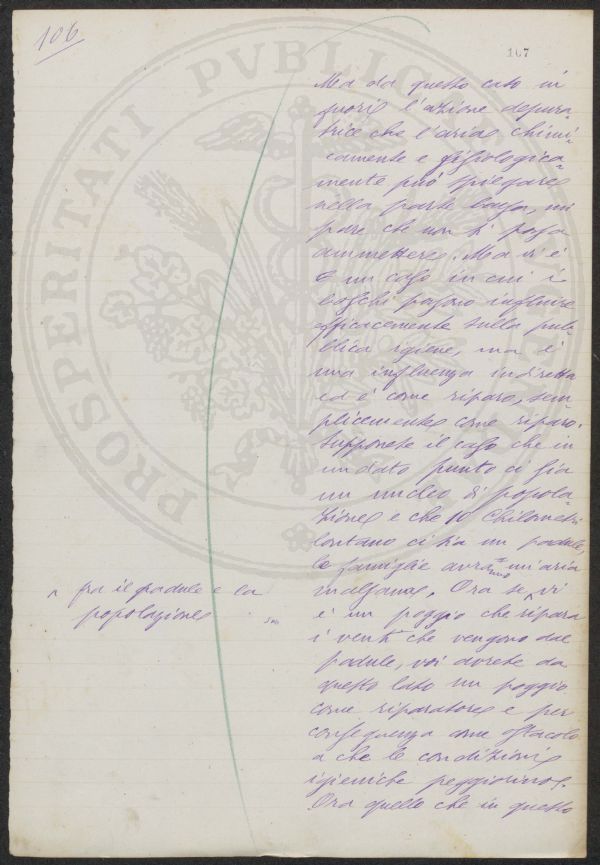 106
107
Ma da questo caso in
fuori l'azione depura=
trice che l'aria chimi=
camente e fisiologica=
mente può spiegare
nella parte bassa, mi
pare che non si possa
ammettere. Ma vi è
un caso in cui i
boschi possono influire
efficacemente sulla pub=
blica igiene, ma è
una influenza indiretta
ed è come riparo, sem=
plicemente come riparo.
Supponete il caso che in
un dato punto ci sia
un nucleo di popola=
zione e che 10 Chilometri
lontano ci sia un padule,
le famiglie avranno un'aria
malsana. Ora se ^ vi
è un poggio che ripara
i venti che vengono dal
padule, voi avrete da
questo lato un poggio
come riparatore e per
conseguenza come ostacolo
a che le condizioni
igieniche peggiorino.
Ora quello che in questo
^ fra il padule e la
popolazione
PROSPERITATI PVBLICAE